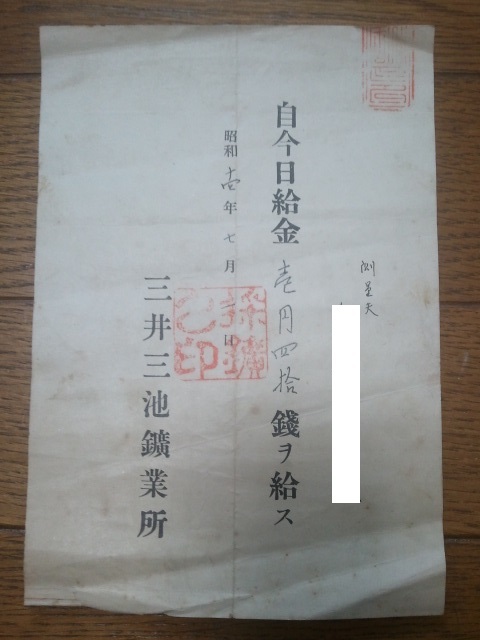 測量夫
自今日給金壱円四拾錢ヲ給ス
昭和年七月日
三井三池鑛業所
採鑛
印